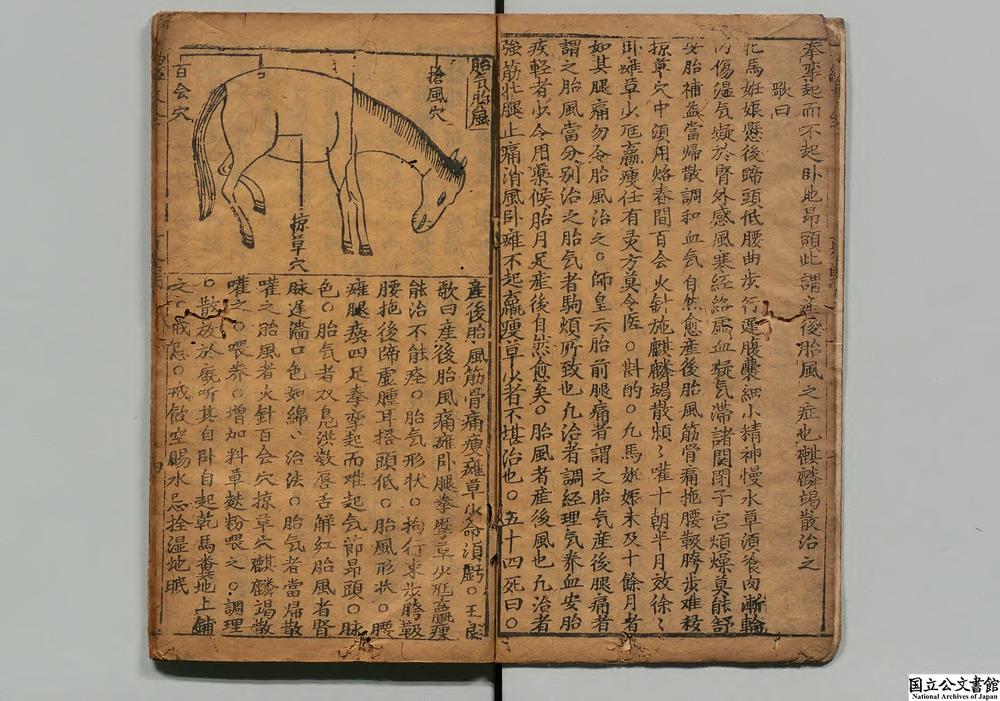 拳挛起而不起卧地昂頭此謂産後胎風之症也麒麟竭散治之
歌曰
牝馬妊娠懸後蹄頭低腰曲步行遲腹囊細小精神慢水草須飡肉漸輪
内傷温气凝於腎外感風寒経絡虚血凝气滯諸関閉子宫煩燥莫能舒
安胎補益當帰散調和血气自然愈産後胎風筋骨痛拖腰靸胯步难移
掠草穴中須用烙春間百会火針施麒麟竭散頻〻嚾十朝半月效徐〻
卧难草少尫羸痩任有灵方莫令医○斟酌○凢馬妊娠未及十餘月者
如其腿痛勿令胎風治之○師皇云胎前腿痛者謂之胎气産後腿痛者
謂之胎風當分别治之胎气者駒煩所致也凢治者調経理气养血安胎
疾輕者少令用藥候胎月足産後自然愈矣○胎風者産後風也凢治者
強筋壮腿止痛消風卧难不起羸痩草少者不堪治也○五十四死曰○
胎气胎風
搶風穴
百会穴
掠草穴
産後胎風筋骨痛痩难草少命須虧○王良
歌曰産後胎風痛难卧腿拳挛草少尫羸痩
能治不能痊○胎气形状○拘行束步胯靸
腰拖後蹄虚腫耳搭頭低○胎風形状○腰
难腿痪四足拳挛起而难起气節昂頭○脉
色○胎气者双凫洪数唇舌鮮红胎風者腎
脉遲濇口色如綿〻治法○胎气者當帰散
嚾之胎風者火針百会穴掠草穴麒麟竭散
嚾之○喂养○增加料草麸粉喂之○調理
○散放於廐听其自卧自起乾馬粪地上鋪
之○戒忌○戒飲空腸水忌拴湿地眠
国立公文書館
National Archives of Japan